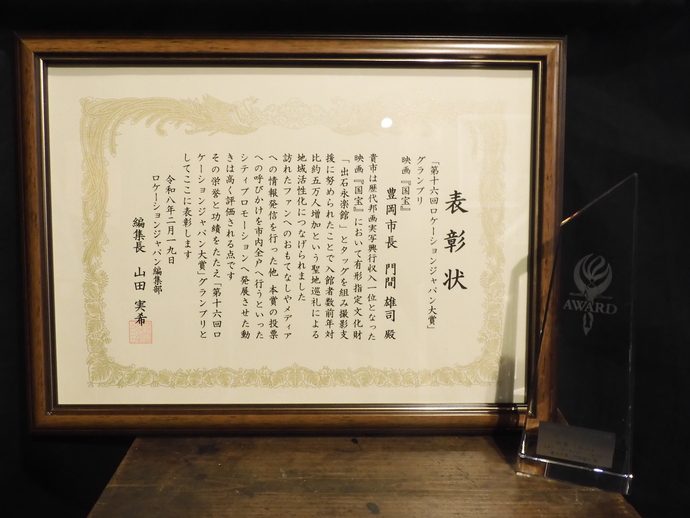 表彰状
「第十六回ロケーションジャパン大賞」
グランプリ
映画『国宝』
豊岡市長 門間 雄司 殿
貴市は歴代邦画実写興行収入一位となった
映画『国宝』において有形指定文化財
「出石永楽館」とタッグを組み撮影支
援に努められたことで入館者数前年対
比約五万人増加という聖地巡礼による
地域活性化につなげられました
訪れたファンへのおもてなしやメディア
への情報発信を行った他 本賞の投票
への呼びかけを市内全戸へ行うといった
シティプロモーションへ発展させた動
きは高く評価される点です
その栄誉と功績をたたえ「第十六回ロ
ケーションジャパン大賞」グランプリと
してここに表彰します
令和八年二月一九日
ロケーションジャパン編集部
編集長 山田 実希
AWARD